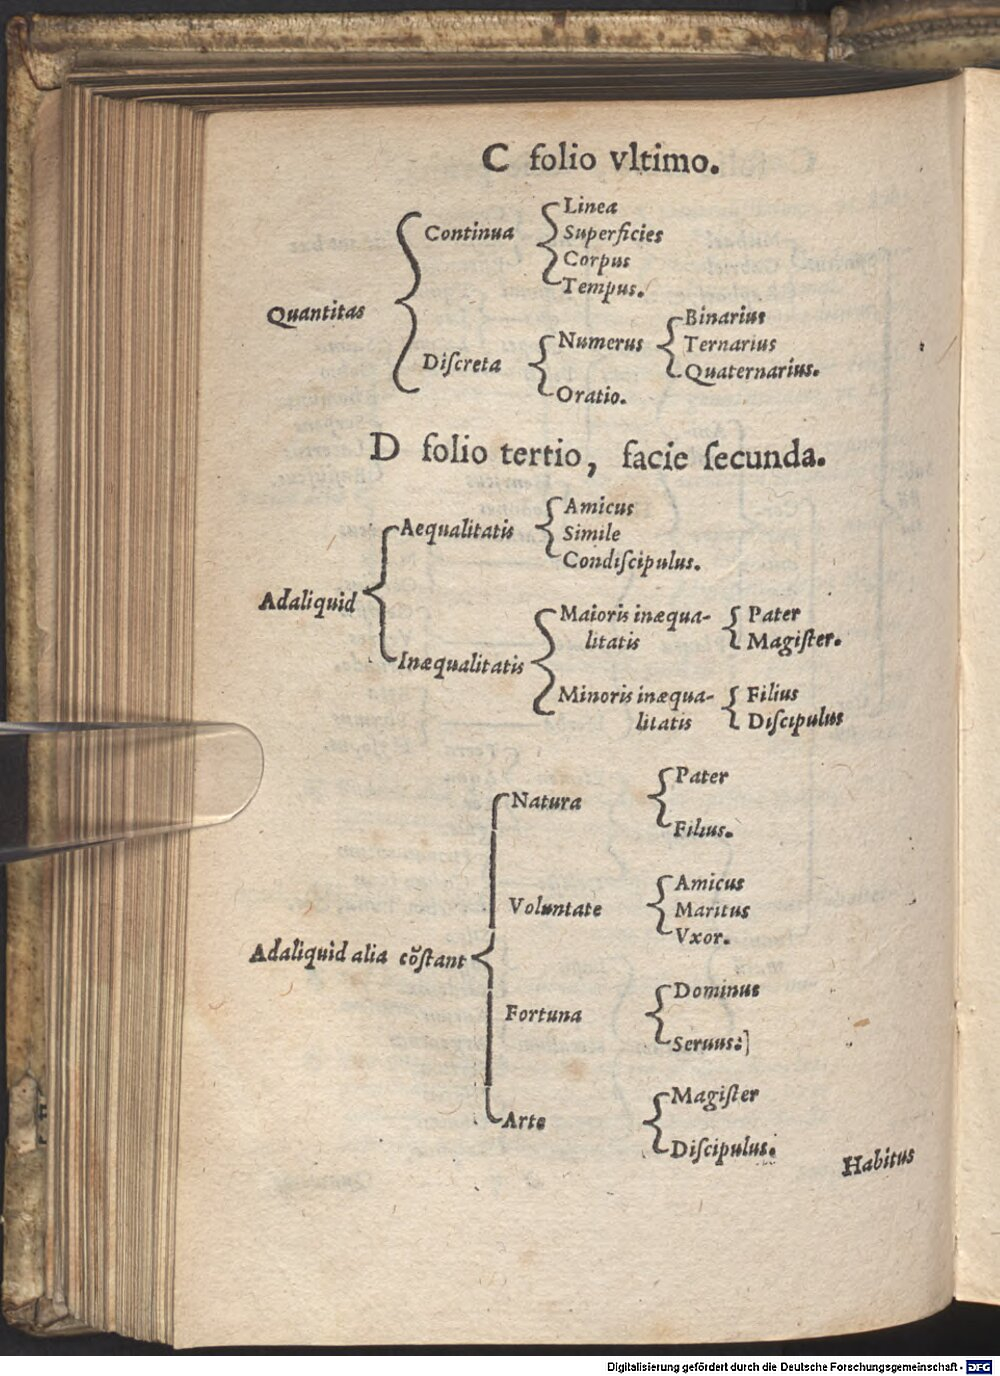 C folio vltimo.
Quantitas
Continua
Linea
Superficies
Corpus
Tempus.
Diſcreta
Numerus
Binarius
Ternarius
Quaternarius.
Oratio.
D folio tertio, facie ſecunda.
Adaliquid
Aequalitatis
Amicus
Simile
Condiſcipulus.
Inæqualitatis
Maioris inæqua-
litatis
Pater
Magiſter.
Minoris inæqua-
litatis
Filius
Diſcipulus
Adaliquid alia cõſtant
Natura
Pater
Filius.
Voluntate
Amicus
Maritus
Vxor.
Fortuna
Dominus
Seruus:]
Arte
Magiſter
Diſcipulus.
Habitus
Digitalisierung gefördert durch die Deutsche Forschungsgemeinschaft - DFG